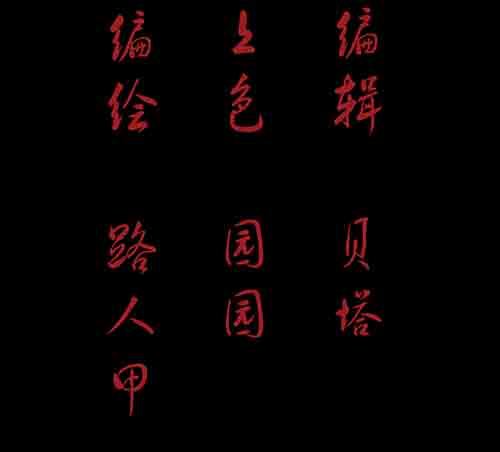 编绘
路人甲
上色
园园
编辑
贝塔